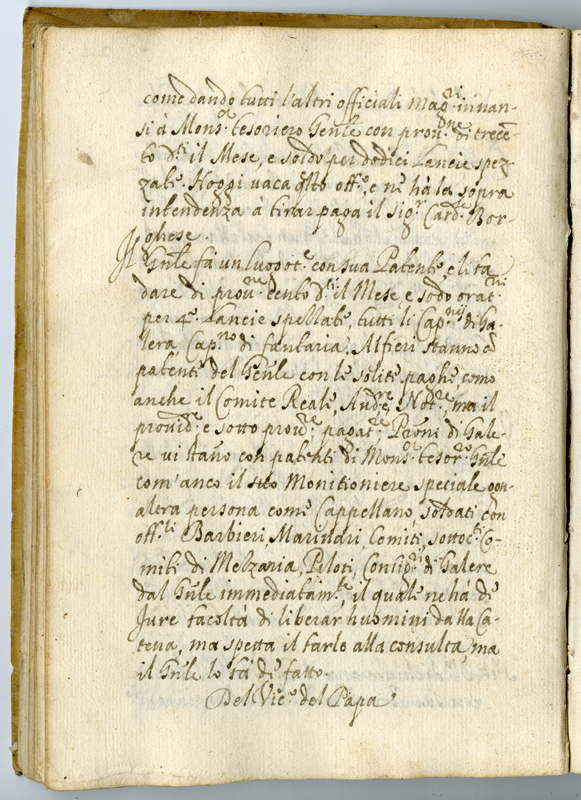 come dando tutti l'altri officiali mag.ri innan-
si à Mons.r tesoriero Gen̄le con prou.ne di trecē-
to d.ti il Mese, e soldo per dodici Lancie spez-
zate. Hoggi uaca q̄sto off.o, e ne hà la sopra
intendenza à tirar paga il sig.r Card.le Bor-
ghese.
Il Gen̄le fà un luogot.e con sua Patente, e li fà
dare di prou.ne cento d.ti il Mese e
per 4.o Lancie spessate, tutti li Cap.nij di Ga-
lera Cap.no di fantaria, Alfieri stanno cō
patente del Gen̄le con le solite paghe, come
anche il Comite Reale, Aud.re, Not.re, ma il
prouid.re e sotto prou.re, pagat.re, Proni di Gale-
re ui stāno con patenti di Mons.r tesor.ro Gn̄le
com'anco il Monitioniere speciale
altra persona come Cappellano, soldati con
off.li Barbieri, Marinari, Comiti, sottoc.ti Co-
miti di Melzania, Piloti, Consig.ri di Galere
dal Gn̄le immediatam.te, il quale ne hà de
Jure facoltà di liberar huomini dalla Ca-
tena, ma spetta il farlo alla consulta, ma
il Gn̄le lo fà de fatto.
Del Vic.o del Papa